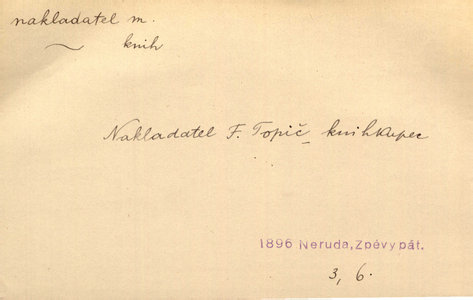 nakladatel m.
~ knih
Nakladatel F. Topič knihkupec
1896 Neruda, Zpěvy pát.
3, 6.